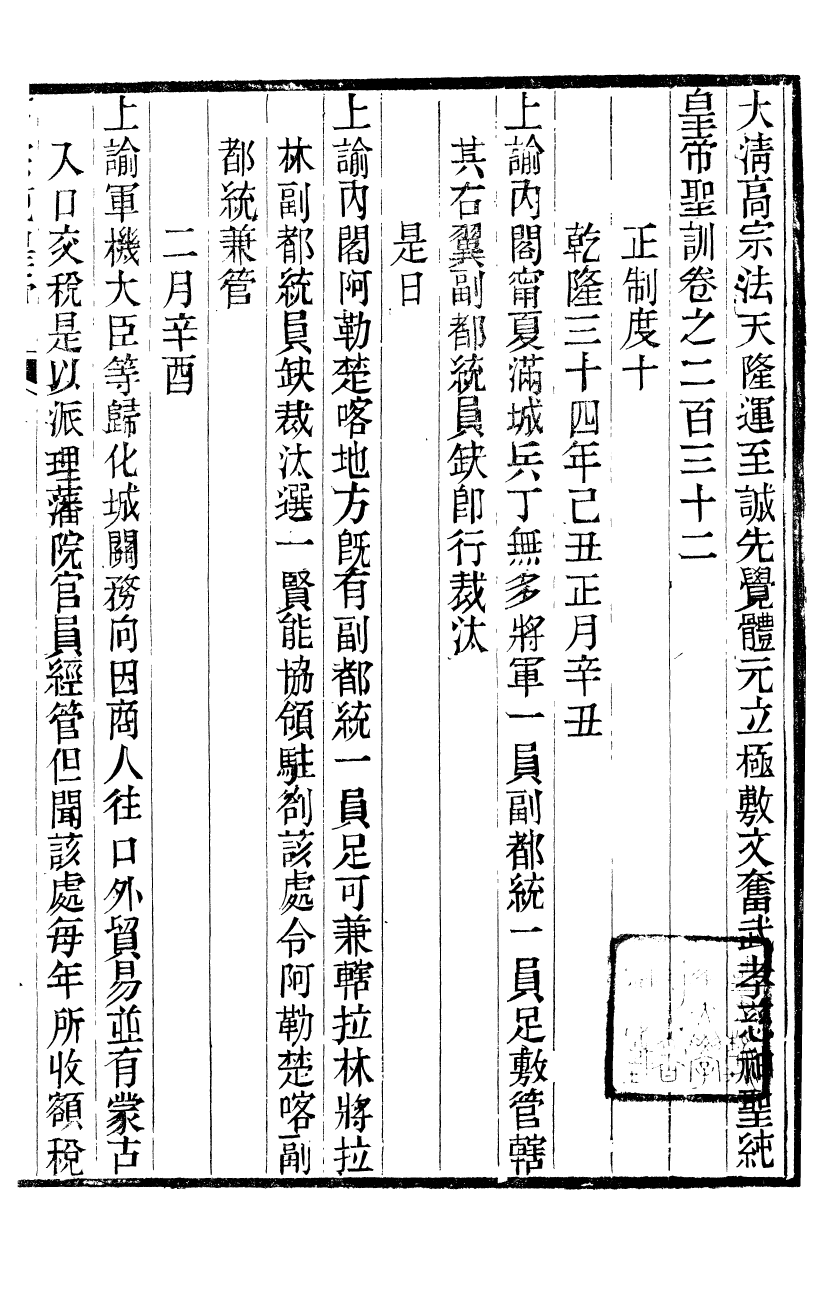 大淸高宗法天隆運至誠先覺體元立極敷文奮武孝慈神聖純
皇帝聖訓卷之二百三十二
正制度十
乾隆三十四年己丑正月辛丑
上諭內閣甯夏滿城兵丁無多將軍一員副都統一員足敷管轄
其右翼副都統員缺卽行裁汰
是日
上諭內閣阿勒楚喀地方旣有副都統一員足可兼轄拉林將拉
林副都統員缺裁汰選一賢能協領駐劄該處令阿勒楚喀副
都統兼管
二月辛酉
上諭軍機大臣等歸化城關務向因商人往口外貿易並有蒙古
入口交稅是以派理藩院官員經管但聞該處每年所收額稅